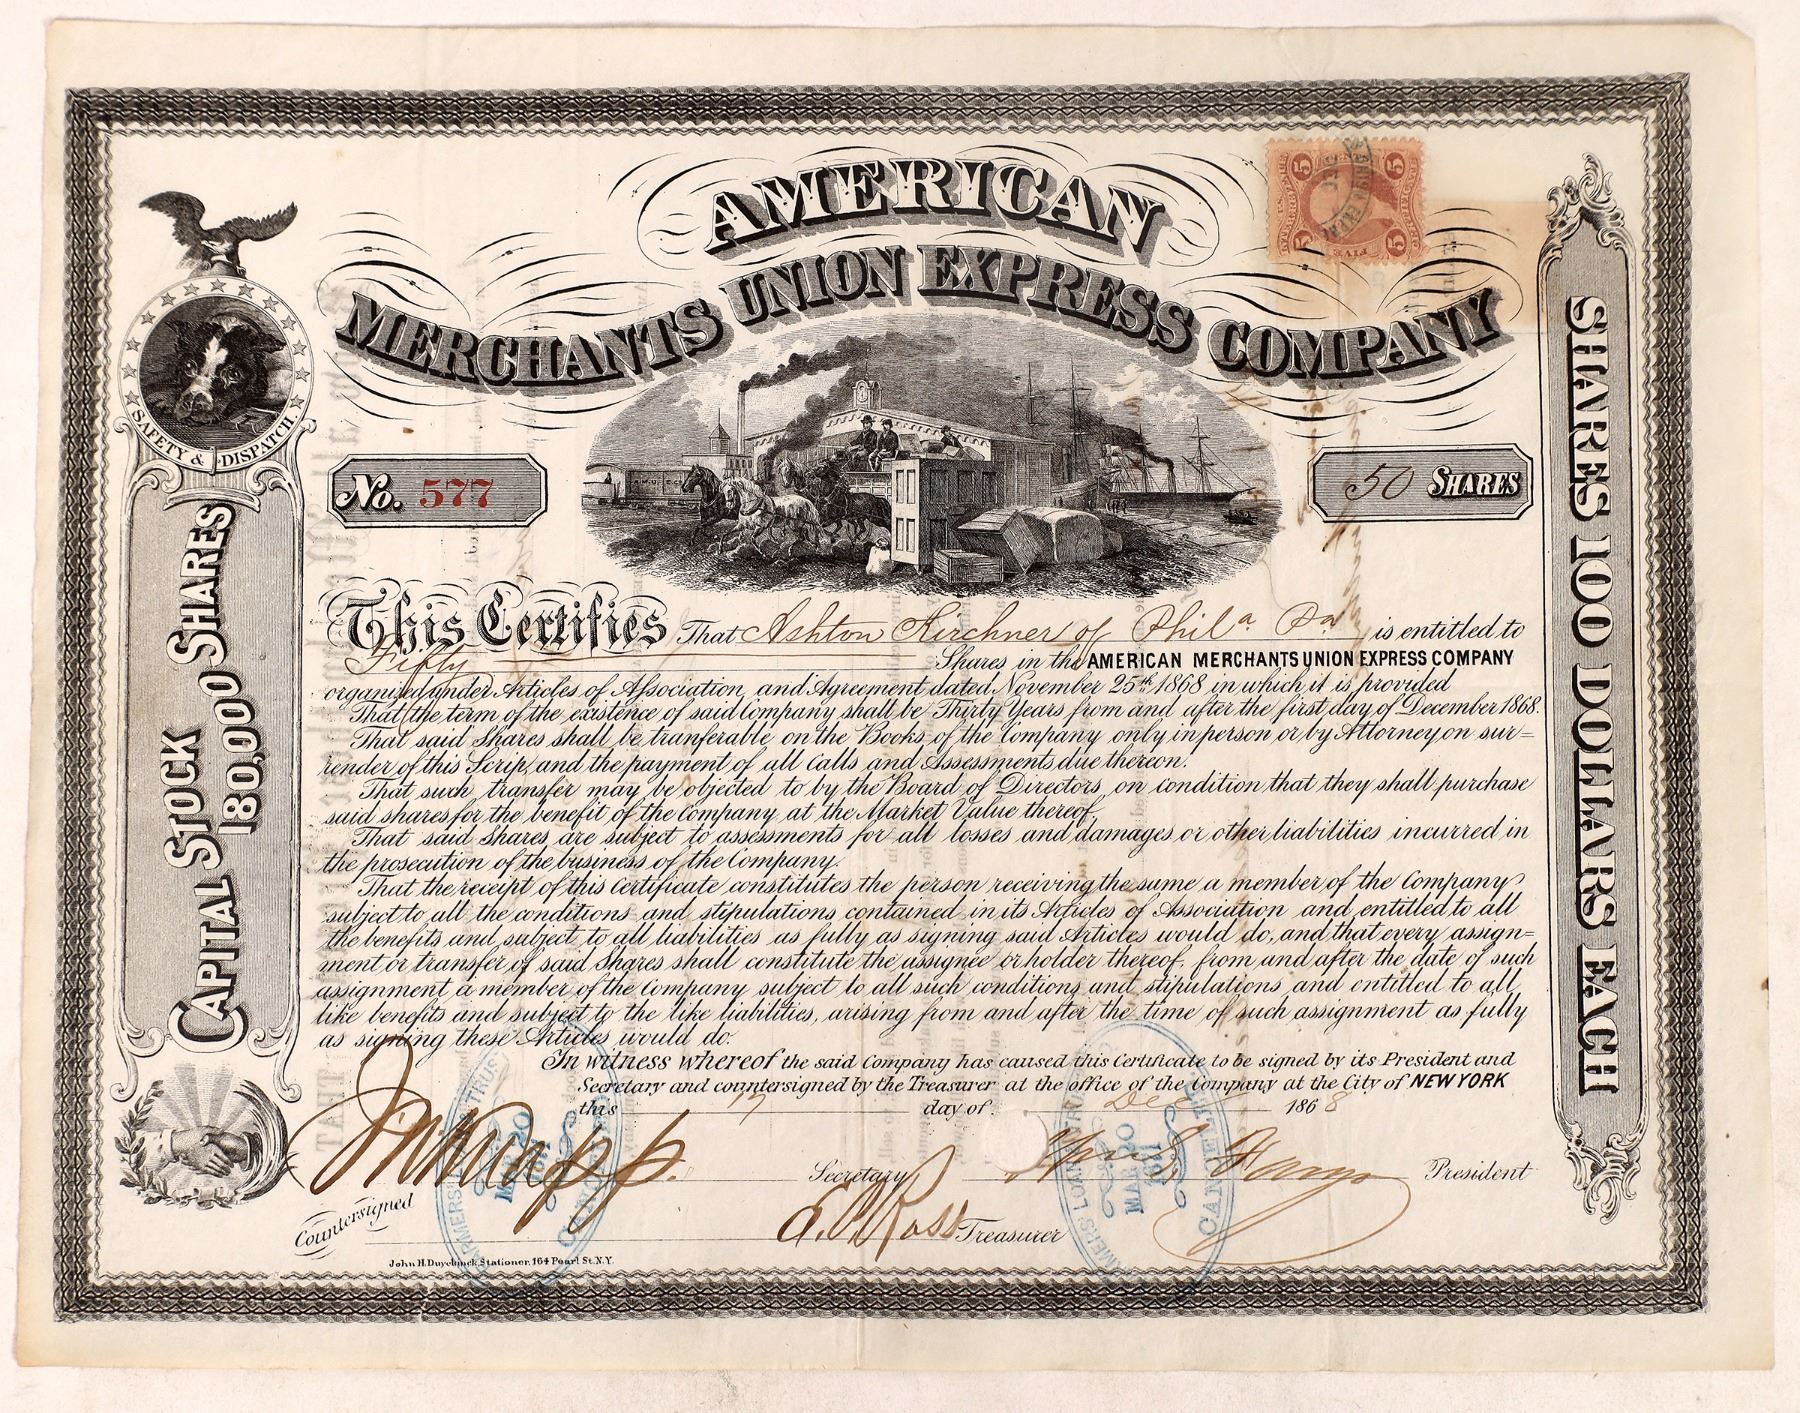 AMERICAN
MERCHANTS UNION EXPRESS COMPANY
SAFETY & DISPATCH.
CAPITAL STOCK 180,000 SHARES
SHARES 100 DOLLARS EACH
No. 577
50 SHARES
This Certifies That Ashton Kirchner of Phila Pa is entitled to
Fifty Shares in the AMERICAN MERCHANTS UNION EXPRESS COMPANY
organized under Articles of Association, and Agreement dated November 25th 1868 in which it is provided
That the term of the existence of said Company shall be Thirty Years from and after the first day of December 1868.
That said Shares shall be tranferable on the Books of the Company only in person or by Attorney on sur=
render of this Scrip, and the payment of all Calls and Assessments due thereon.
That such transfer may be objected to by the Board of Directors, on condition that they shall purchase
said shares for the benefit of the Company, at the Market Value thereof,
That said Shares are subject to assessments for all losses and damages or other liabilities incurred in
the prosecution of the business of the Company.
That the receipt of this Certificate constitutes the person receiving the same a member of the Company
subject to all the conditions and stipulations contained in its Articles of Association and entitled to all
the benefits and subject to all liabilities as fully as signing said Articles would do, and that every assign=
ment or transfer of said Shares shall constitute the assignee or holder thereof, from and after the date of such
assignment a member of the Company subject to all such conditions and stipulations, and entitled to all
like benefits and subject to the like liabilities, arising from and after the time of such assignment as fully
as signing these Articles would do.
In witness whereof the said Company has caused this Certificate to be signed by its President and
Secretary and countersigned by the Treasurer at the office of the Company at the City of NEW YORK
this 17 day of Dec 1868
Knapp. Secretary
President
Countersigned
Ross Treasurer
John H. Duyckinck, Stationer, 164 Pearl St. N.Y.
FARMERS LOAN TRUST
MAR 20
5 5
5 5
FIVE